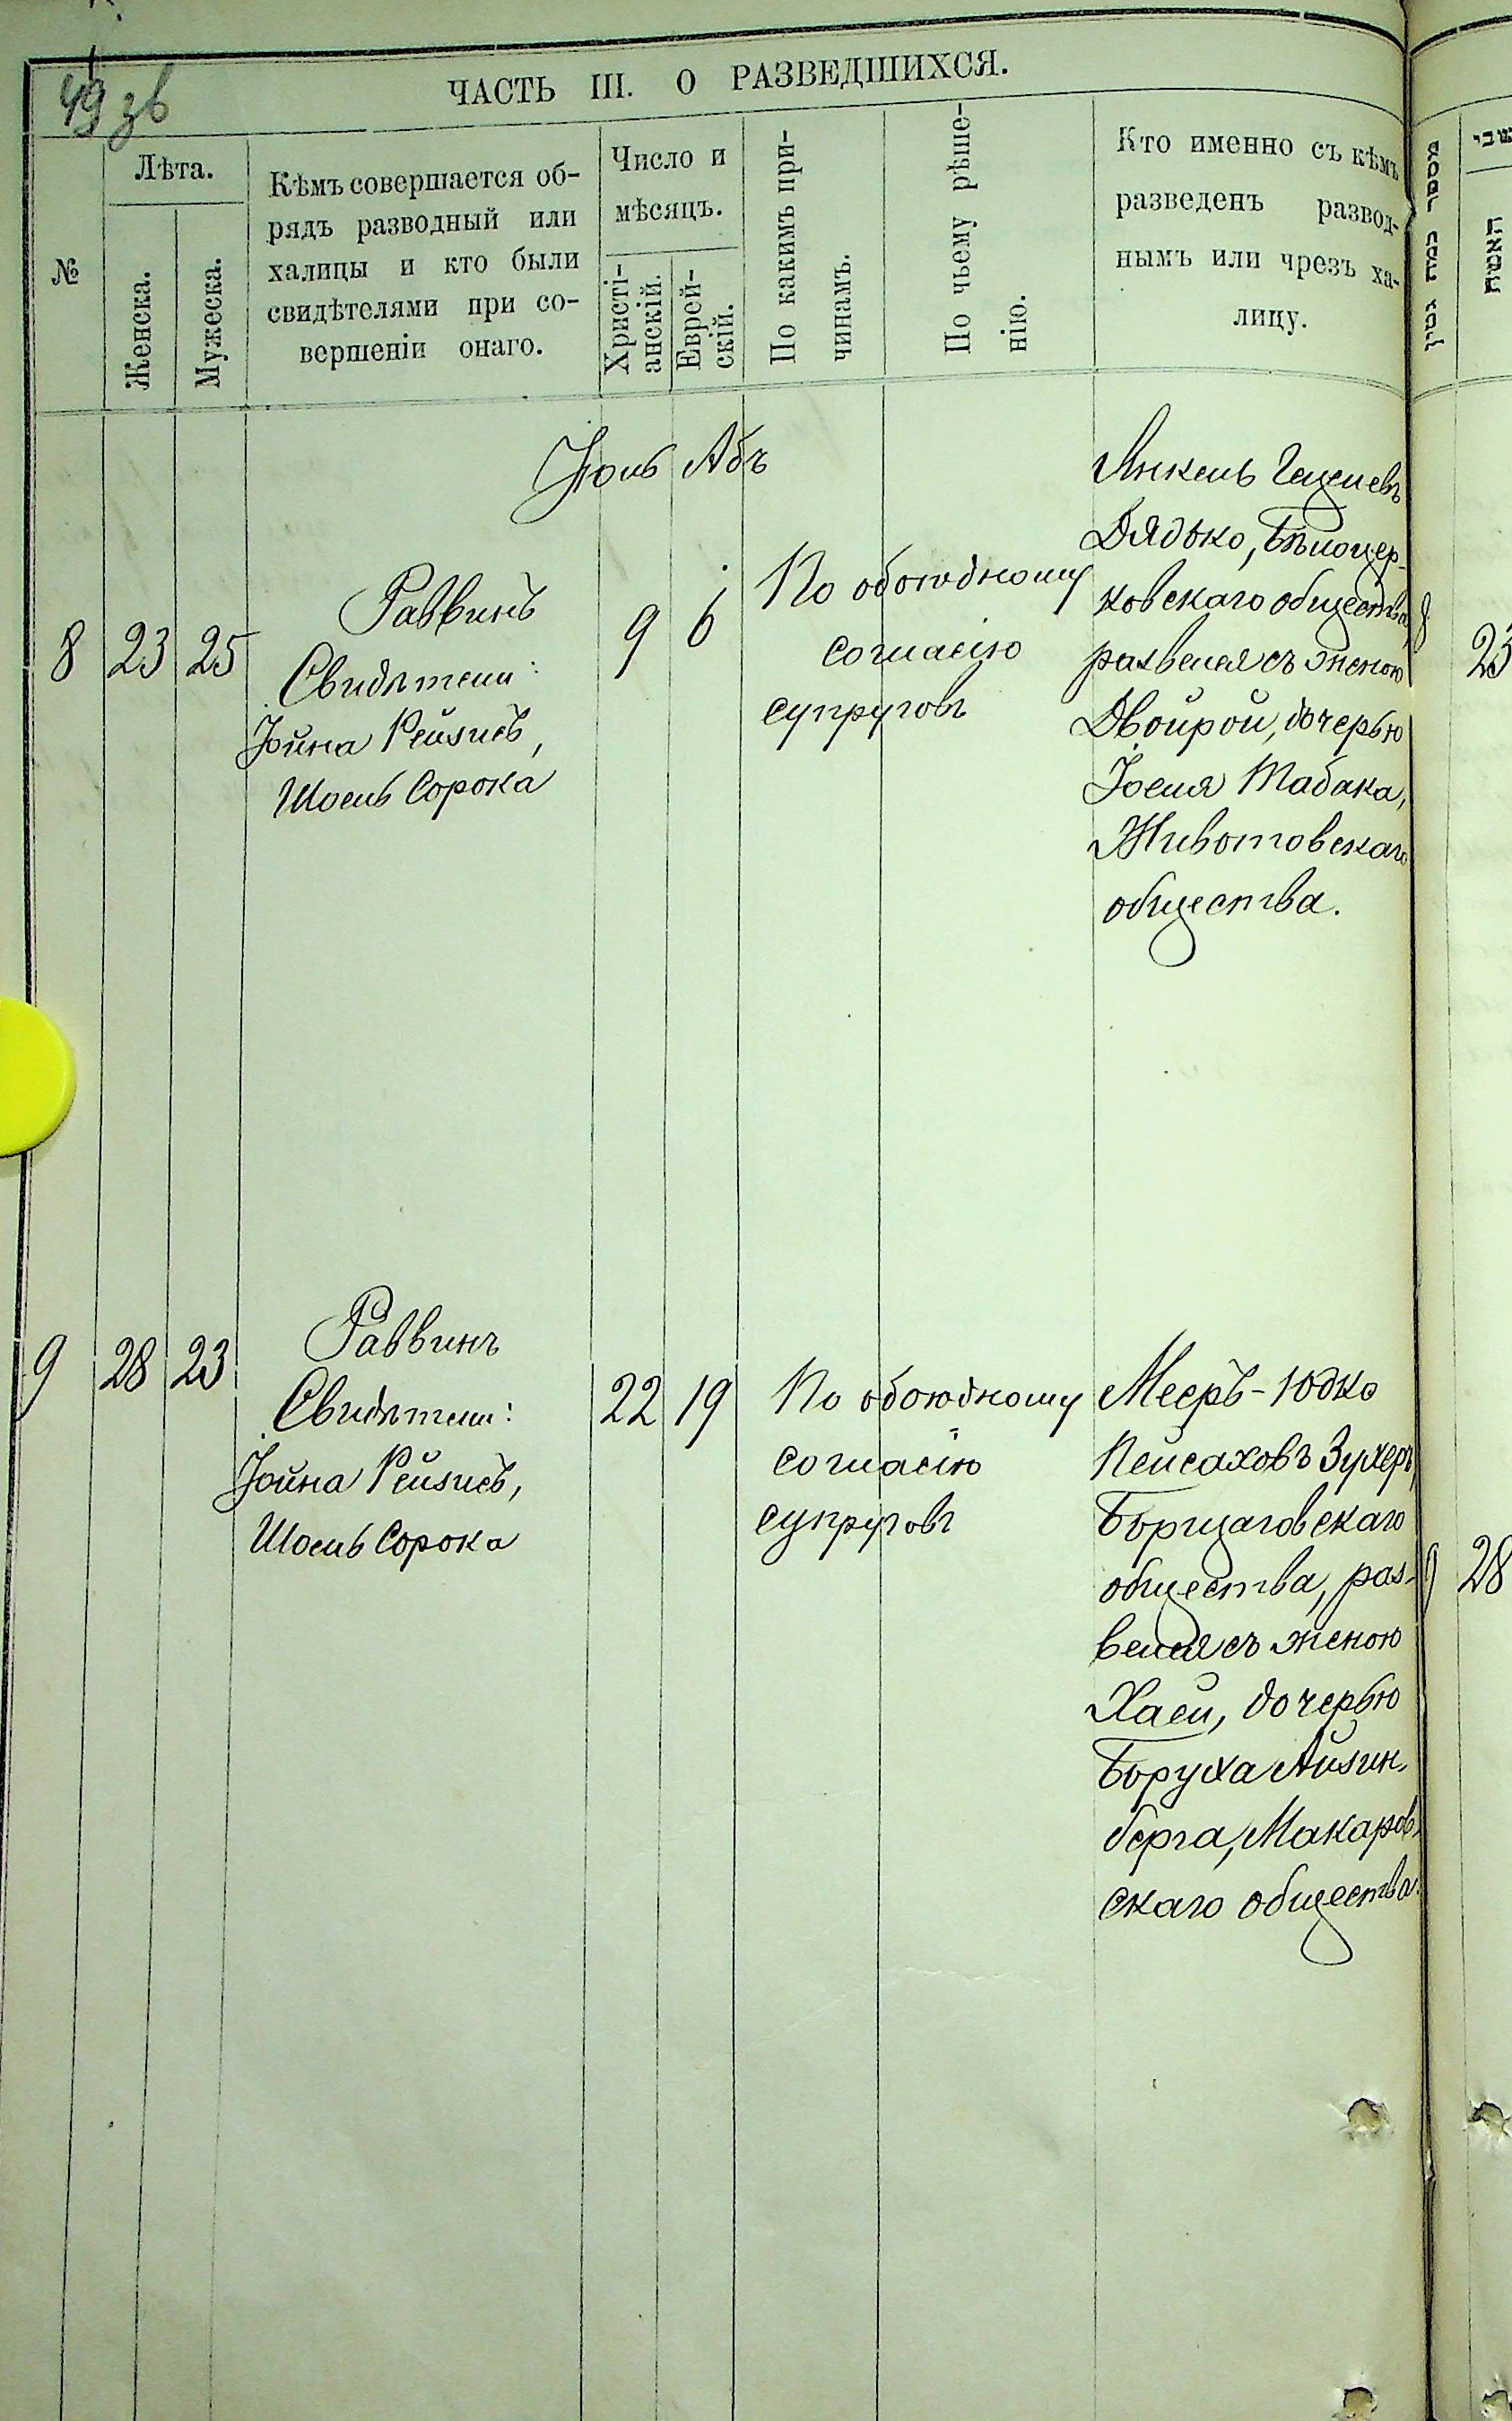 49 зв
ЧАСТЬ III. О РАЗВЕДШИХСЯ.
№
Лѣта.
Женска.
Мужеска.
Кѣмъ совершается об-
рядъ разводный или
халицы и кто были
свидѣтелями при со-
вершеніи онаго.
Число и
мѣсяцъ.
Христі-
анскій.
Еврей-
скій.
По какимъ при-
чинамъ.
По чьему рѣше-
нію.
Кто именно съ кѣмъ
разведенъ развод-
нымъ или чрезъ ха-
лицу.
מספר כמה גטין
האשה
Іюль Абъ
8 23 25
Раввинъ
Свидѣтели:
Іойна Рейзисъ,
Шоель Сорока
9 6
По обоюдному
согласію
супруговъ
Янкель Гецелевъ
Дядько, Бѣлоцер-
ковскаго общества,
развелся съ женою
Двойрой, дочерью
Іоселя Табака,
Животовскаго
общества.
8 23
9 28 23
Раввинъ
Свидѣтели:
Іойна Рейзисъ,
Шоель Сорока
22 19
По обоюдному
согласію
супруговъ
Мееръ-Юдко
Пейсаховъ Зухеръ,
Борщаговскаго
общества, раз-
велся съ женою
Хаей, дочерью
Боруха Айзин-
берга, Макаров-
скаго общества.
9 28